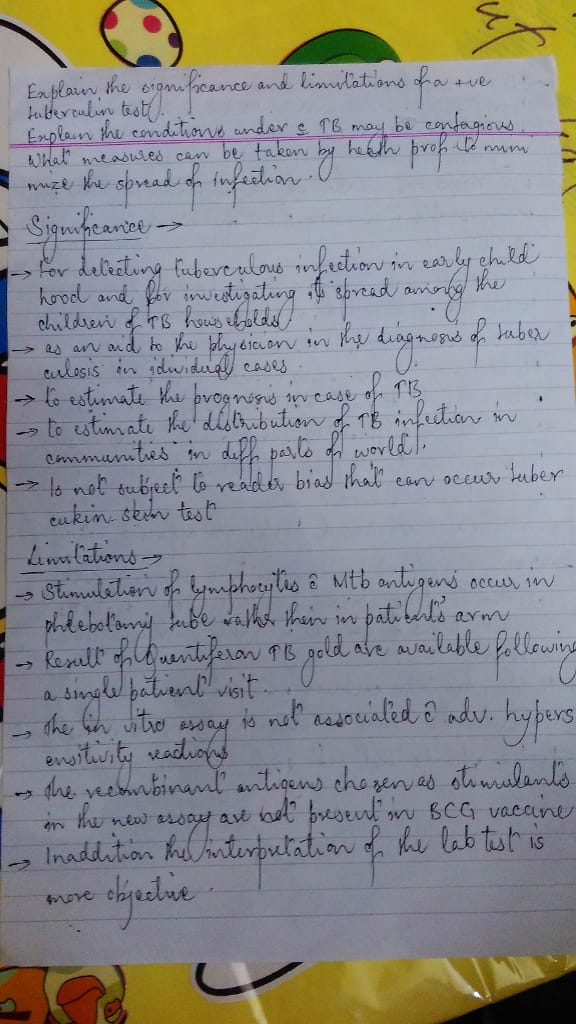 Explain the significance and limitations of a +ve
tuberculin test.
Explain the conditions under c TB may be contagious.
What measures can be taken by health prof. to mini
mize the spread of infection.
Significance →
→ For detecting tuberculous infection in early child
hood and for investigating its spread among the
children of TB households
→ as an aid to the physician in the diagnosis of tuber
culosis in idividual cases.
→ to estimate the prognosis in case of TB
→ to estimate the distribution of TB infection in
communities in diff parts of world.
→ Is not subject to reader bias that can occur tuber
culin skin test
Limitations →
→ Stimulation of lymphocytes c Mtb antigens occur in
phlebotomy tube rather then in patient's arm
→ Result of Quantiferon TB gold are available following
a single patient visit.
→ The in vitro assay is not associated c adv. hypers
ensitivity reactions
→ The recombinant antigens chosen as stimulants
in the new assay are not present in BCG vaccine
→ Inaddition the interpretation of the lab test is
more objective.